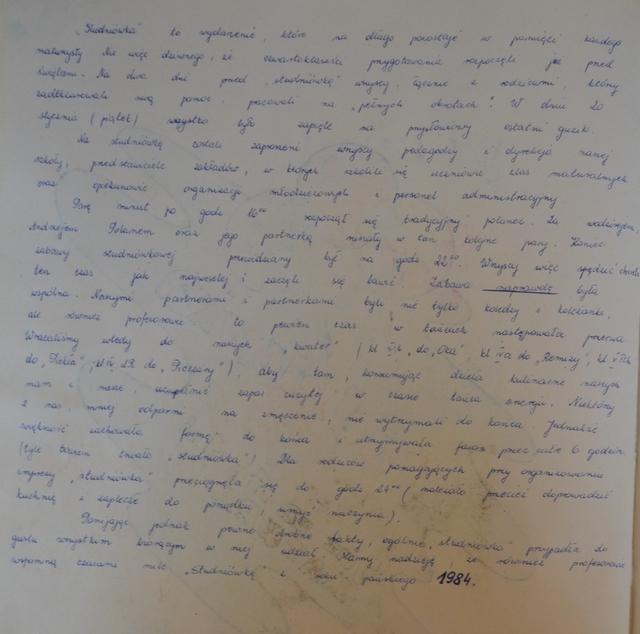 „Studniówka" to wydarzenie, które na długo pozostaje w pamięci każdego
maturzysty. Nic więc dziwnego, że czwartoklasiści przygotowania rozpoczęli już przed
świętami. Na dwa dni przed „studniówką" wszyscy, łącznie z rodzicami, którzy
zadeklarowali swą pomoc, pracowali na „pełnych obrotach". W dniu 20
stycznia (piątek) wszystko było zapięte na przysłowiowy ostatni guzik.
Na studniówkę zostali zaproszeni wszyscy pedagodzy i dyrekcja naszej
szkoły, przedstawiciele zakładów, w których szkolili się uczniowie klas maturalnych
oraz opiekunowie organizacji młodzieżowych i personel administracyjny.
Parę minut po godz. 16⁰⁰ rozpoczął się tradycyjny polonez. Za wodzirejem,
Andrzejem oraz jego partnerką ruszyły w tan kolejne pary. Koniec
zabawy studniówkowej przewidziany był na godz. 22⁰⁰. Wszyscy więc spędzić chcieli
ten czas jak najweselej i zaczęli się bawić. Zabawa naprawdę była
wspólna. Naszymi partnerami i partnerkami byli nie tylko koledzy i koleżanki,
ale również profesorowie. Co pewien czas w tańcach następowała przerwa.
Wracaliśmy wtedy do naszych „kwater" (kl. do „Oka", kl. IVa do „Remizy", kl.
do „Piekła", kl. IV do ), aby tam, konsumując dzieła kulinarne naszych
mam i nasze, uzupełnić zapas zużytej w czasie tańca energii. Niektórzy
z nas, mniej odporni na zmęczenie, nie wytrzymali do końca. Jednakże
większość zachowała „formę" do końca i utrzymywała fason przez całe 6 godzin
(tyle bowiem trwała „studniówka"). Dla rodziców pomagających przy organizowaniu
imprezy „studniówka" przeciągnęła się do godz. 24⁰⁰ (należało przecież doprowadzić
kuchnię i zaplecze do porządku, umyć naczynia).
Pomijając jednak pewne drobne fakty, ogólnie „studniówka" przypadła do
gustu wszystkim biorącym w niej udział. Mamy nadzieję, że również profesorowie
wspomną czasami miło „Studniówkę" z roku pańskiego 1984.